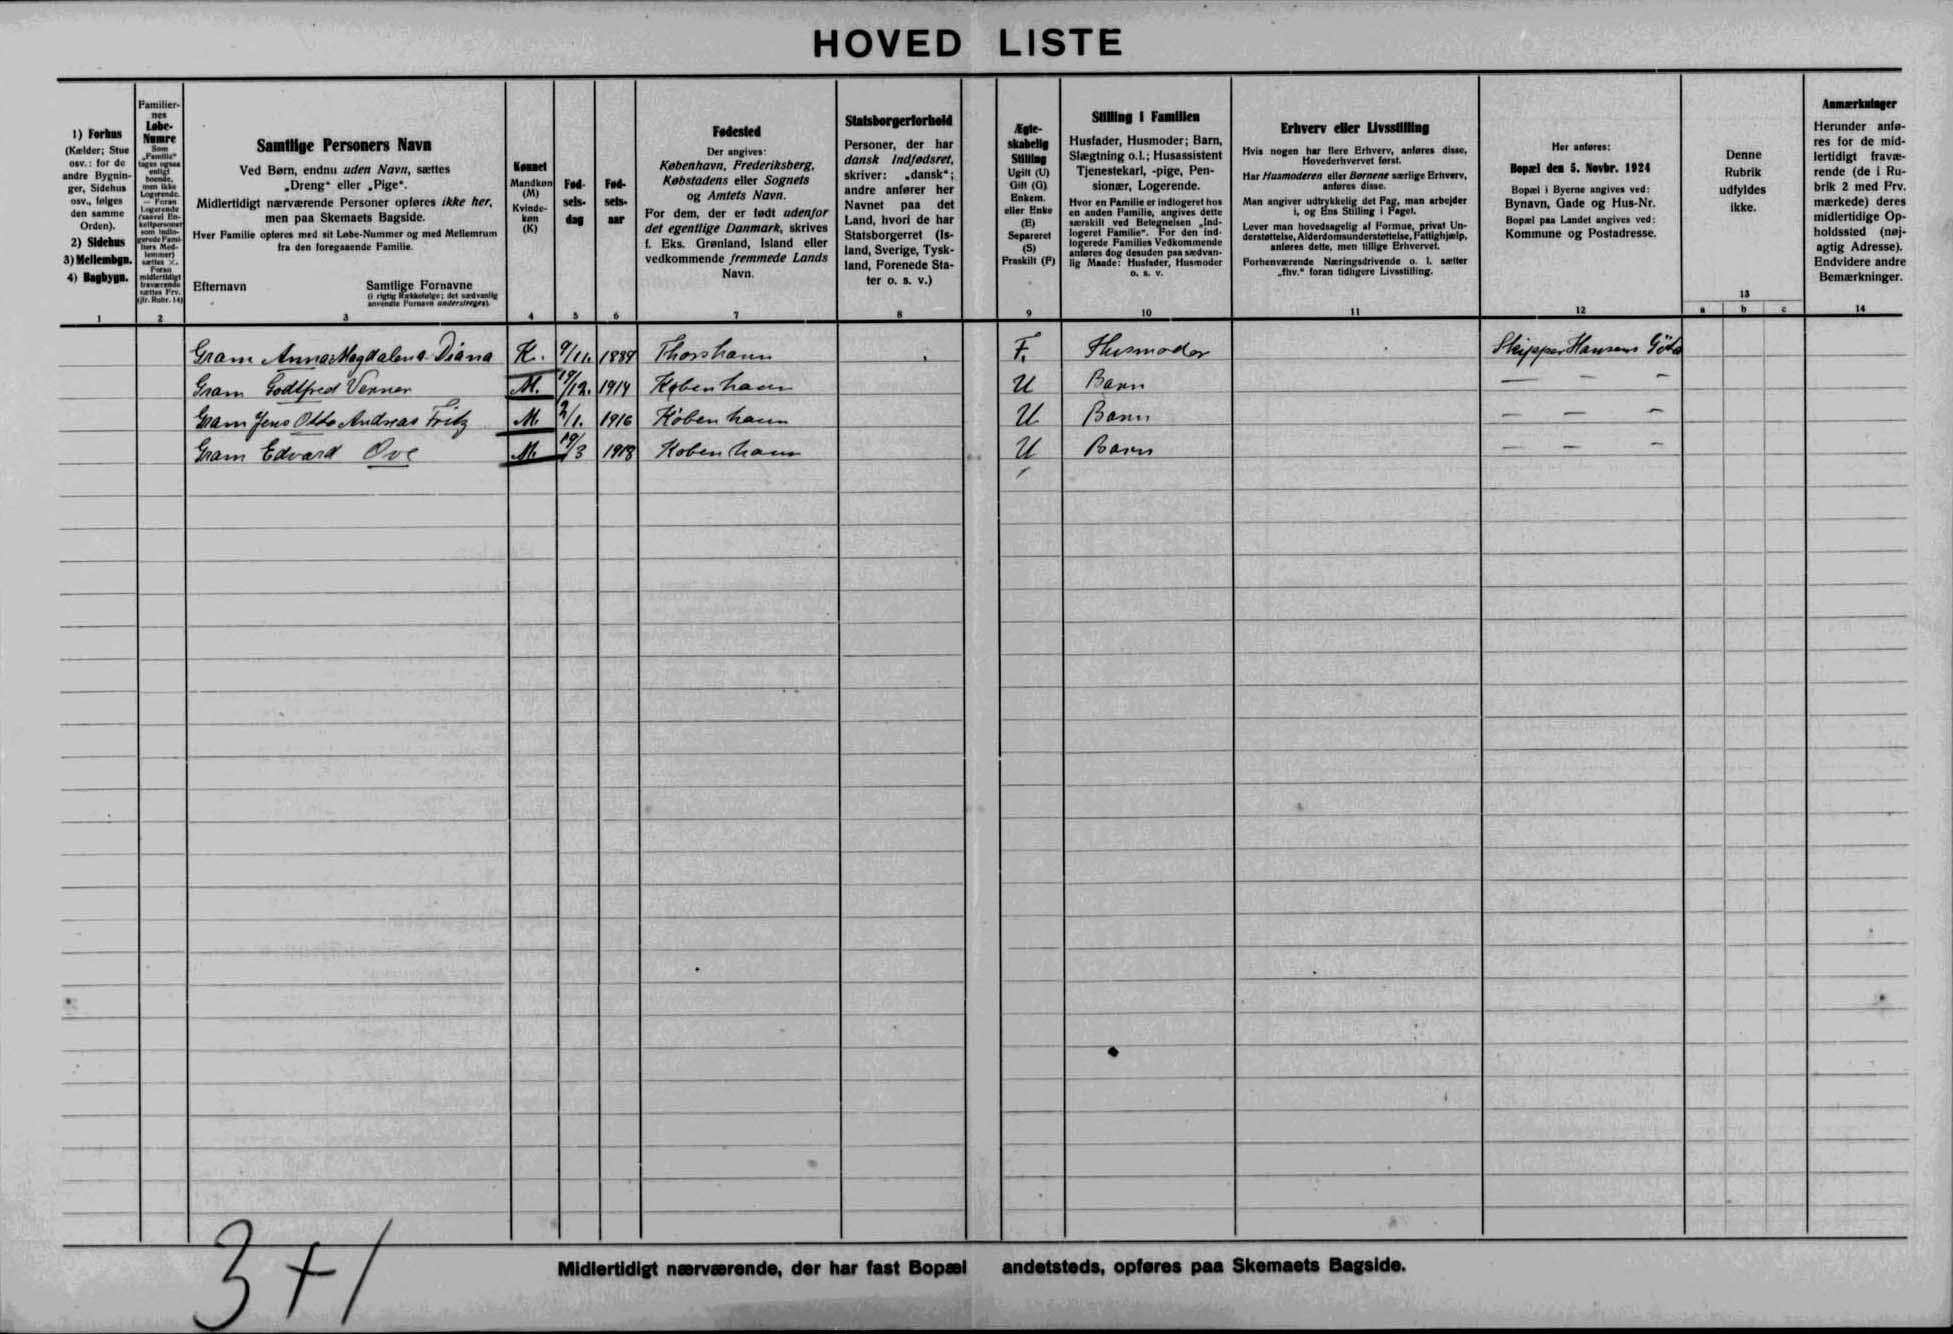 HOVED LISTE
1) Forhus
(Kælder; Stue
osv.: for de
andre Bygnin-
ger, Sidehus
osv., følges
den samme
Orden).
2) Sidehus
3) Mellembgn.
4) Bagbygn.
1
Familier-
nes
Løbe-
Numre
Som
„Familie“
tages ogsaa
enligt
boende,
men ikke
Logerende.
— Foran
Logerende
(saavel En-
keltpersoner
som indlo-
gerede Fami-
liers Med-
lemmer)
sættes ×.
Foran
midlertidigt
fraværende
sættes Frv.
(jfr. Rubr. 14)
2
Samtlige Personers Navn
Ved Børn, endnu uden Navn, sættes
„Dreng“ eller „Pige“.
Midlertidigt nærværende Personer opføres ikke her,
men paa Skemaets Bagside.
Hver Familie opføres med sit Løbe-Nummer og med Mellemrum
fra den foregaaende Familie.
Efternavn
Samtlige Fornavne
(i rigtig Rækkefølge; det sædvanlig
anvendte Fornavn understreges).
3
Kønnet
Mandkøn
(M)
Kvinde-
køn
(K)
4
Fød-
sels-
dag
5
Fød-
sels-
aar
6
Fødested
Der angives:
København, Frederiksberg,
Købstadens eller Sognets
og Amtets Navn.
For dem, der er født udenfor
det egentlige Danmark, skrives
f. Eks. Grønland, Island eller
vedkommende fremmede Lands
Navn.
7
Statsborgerforhold
Personer, der har
dansk Indfødsret,
skriver: „dansk“;
andre anfører her
Navnet paa det
Land, hvori de har
Statsborgerret (Is-
land, Sverige, Tysk-
land, Forenede Sta-
ter o. s. v.)
8
Ægte-
skabelig
Stilling
Ugift (U)
Gift (G)
Enkem.
eller Enke
(E)
Separeret
(S)
Fraskilt (F)
9
Stilling i Familien
Husfader, Husmoder; Barn,
Slægtning o.l.; Husassistent
Tjenestekarl, -pige, Pen-
sionær, Logerende.
Hvor en Familie er indlogeret hos
en anden Familie, angives dette
særskilt ved Betegnelsen „Ind-
logeret Familie“. For den ind-
logerede Families Vedkommende
anføres dog desuden paa sædvan-
lig Maade: Husfader, Husmoder
o. s. v.
10
Erhverv eller Livsstilling
Hvis nogen har flere Erhverv, anføres disse,
Hovederhvervet først.
Har Husmoderen eller Børnene særlige Erhverv,
anføres disse.
Man angiver udtrykkelig det Fag, man arbejder
i, og Ens Stilling i Faget.
Lever man hovedsagelig af Formue, privat Un-
derstøttelse, Alderdomsunderstøttelse, Fattighjælp,
anføres dette, men tillige Erhvervet.
Forhenværende Næringsdrivende o. l. sætter
„fhv.“ foran tidligere Livsstilling.
11
Her anføres:
Bopæl den 5. Novbr. 1924
Bopæl i Byerne angives ved:
Bynavn, Gade og Hus-Nr.
Bopæl paa Landet angives ved:
Kommune og Postadresse.
12
Denne
Rubrik
udfyldes
ikke.
13
a b c
Anmærkninger
Herunder anfø-
res for de mid-
lertidigt fravæ-
rende (de i Ru-
brik 2 med Frv.
mærkede) deres
midlertidige Op-
holdssted (nøj-
agtig Adresse).
Endvidere andre
Bemærkninger.
14
Gram Anna Magdalena Diana K. 9/11. 1889 Thorshavn F. Husmoder Skipper Hansens Göta
Gram Godtfred Verner M. 19/12. 1914 København U Barn — — —
Gram Jens Otto Andreas Fritz M 2/1. 1916 København U Barn — — —
Gram Edvard Ove M. 19/3 1918 København U Barn — — —
3+1
Midlertidigt nærværende, der har fast Bopæl andetsteds, opføres paa Skemaets Bagside.